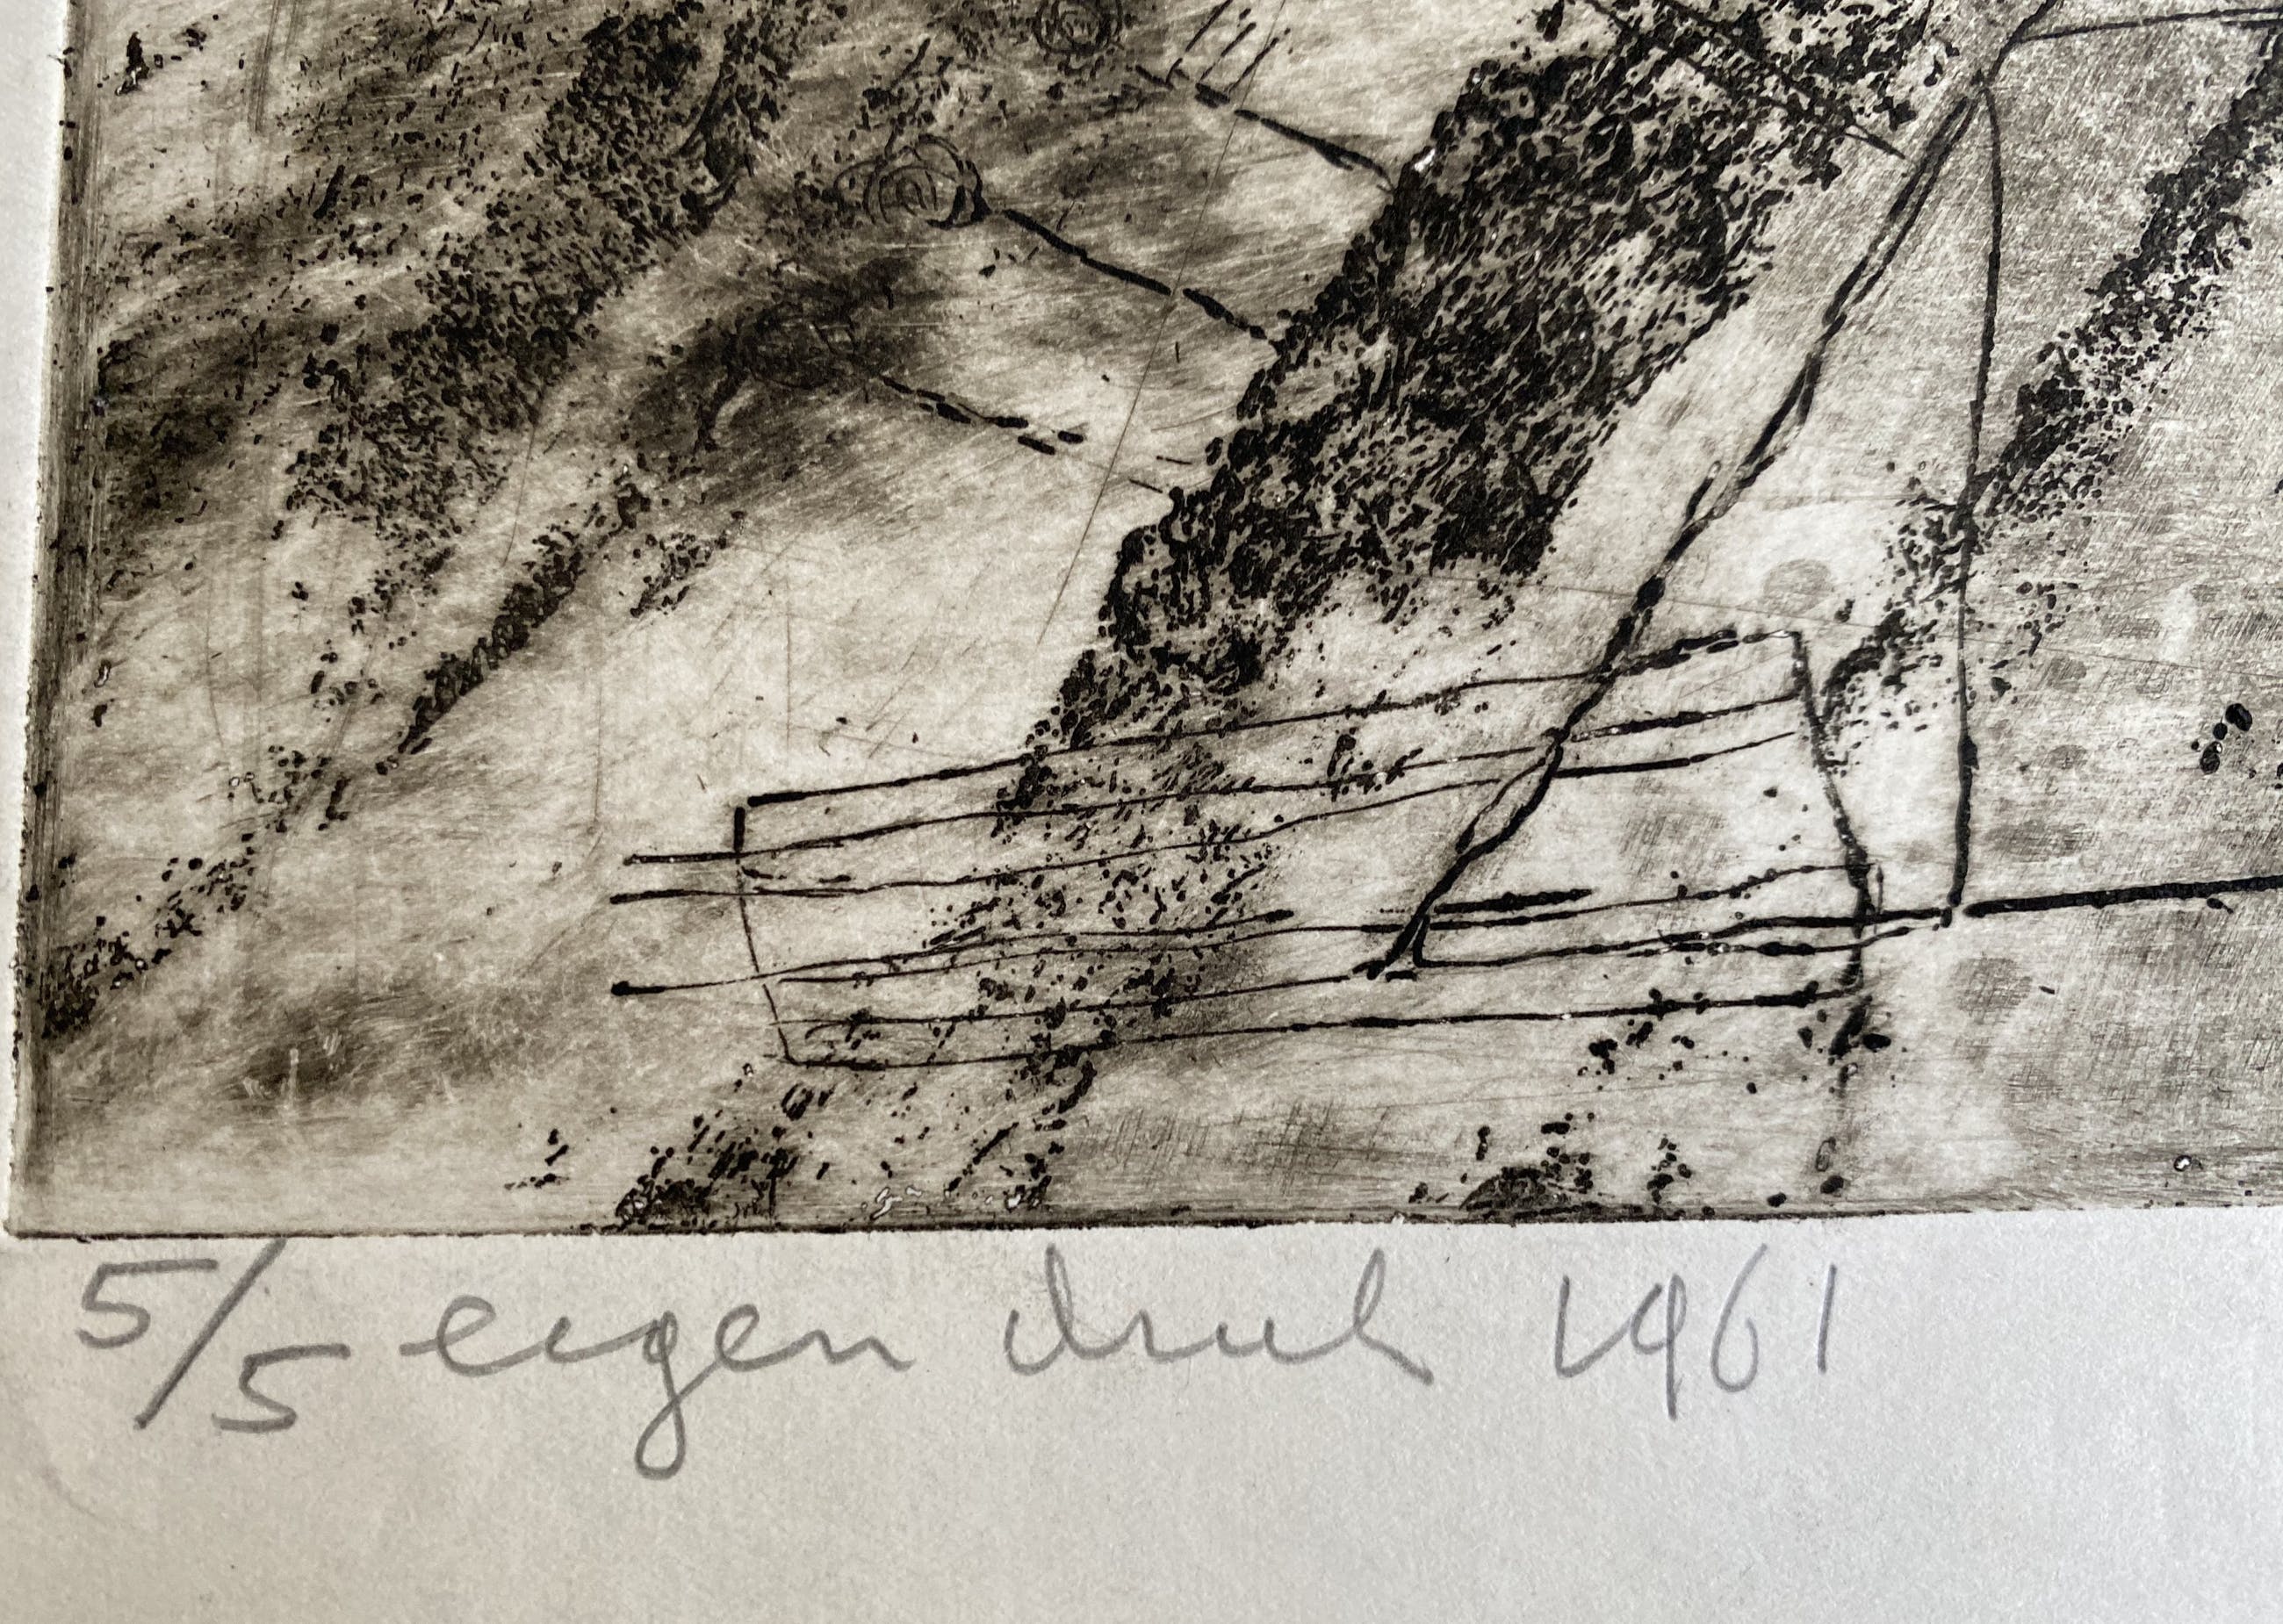 5/5 eigen druk 1961